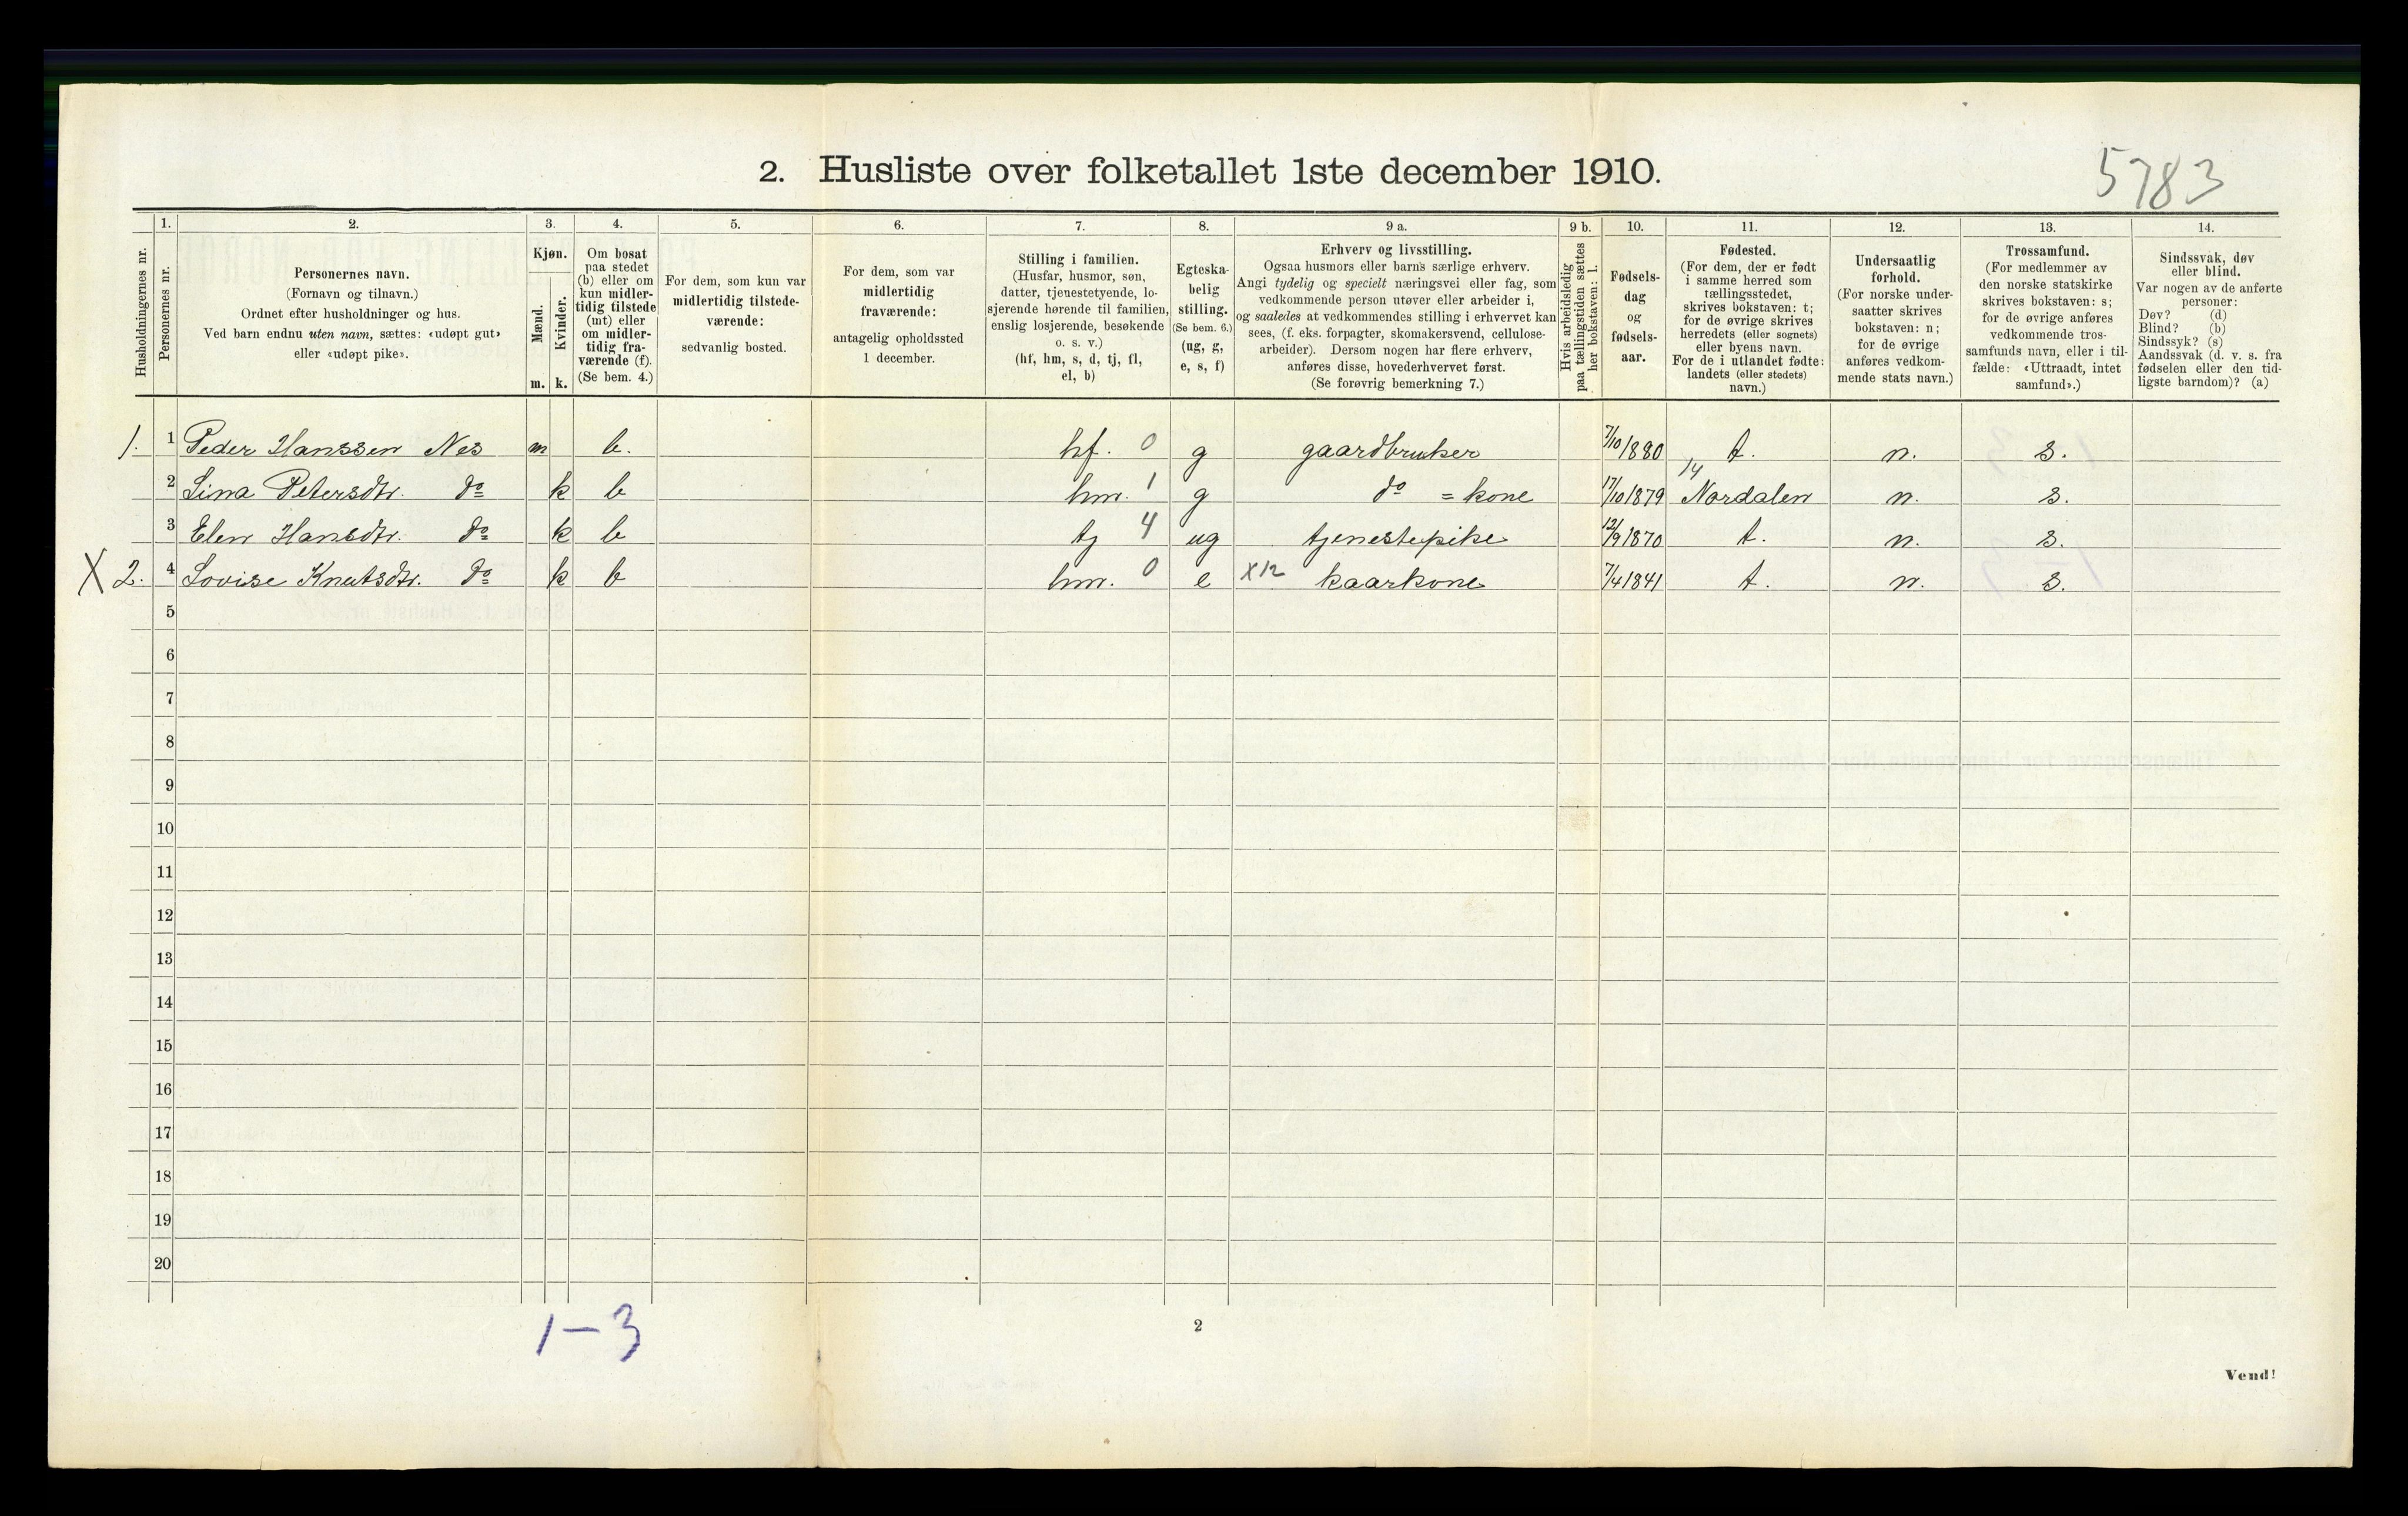 2. Husliste over folketallet 1ste december 1910.
5783
Husholdningernes nr.
1.
Personernes nr.
2.
Personernes navn.
(Fornavn og tilnavn.)
Ordnet efter husholdninger og hus.
Ved barn endnu uten navn, sættes: «udøpt gut»
eller «udøpt pike».
3.
Kjøn.
Mænd.
Kvinder.
m. k.
4.
Om bosat
paa stedet
(b) eller om
kun midler-
tidig tilstede
(mt) eller
om midler-
tidig fra-
værende (f).
(Se bem. 4.)
5.
For dem, som kun var
midlertidig tilstede-
værende:
sedvanlig bosted.
6.
For dem, som var
midlertidig
fraværende:
antagelig opholdssted
1 december.
7.
Stilling i familien.
(Husfar, husmor, søn,
datter, tjenestetyende, lo-
sjerende hørende til familien,
enslig losjerende, besøkende
o. s. v.)
(hf, hm, s, d, tj, fl,
el, b)
8.
Egteska-
belig
stilling.
(Se bem. 6.)
(ug, g,
e, s, f)
9 a.
Erhverv og livsstilling.
Ogsaa husmors eller barns særlige erhverv.
Angi tydelig og specielt næringsvei eller fag, som
vedkommende person utøver eller arbeider i,
og saaledes at vedkommendes stilling i erhvervet kan
sees, (f. eks. forpagter, skomakersvend, cellulose-
arbeider). Dersom nogen har flere erhverv,
anføres disse, hovederhvervet først.
(Se forøvrig bemerkning 7.)
9 b.
Hvis arbeidsledig
paa tællingstiden sættes
her bokstaven: l.
10.
Fødsels-
dag
og
fødsels-
aar.
11.
Fødested.
(For dem, der er født
i samme herred som
tællingsstedet,
skrives bokstaven: t;
for de øvrige skrives
herredets (eller sognets)
eller byens navn.
For de i utlandet fødte:
landets (eller stedets)
navn.)
12.
Undersaatlig
forhold.
(For norske under-
saatter skrives
bokstaven: n;
for de øvrige
anføres vedkom-
mende stats navn.)
13.
Trossamfund.
(For medlemmer av
den norske statskirke
skrives bokstaven: s;
for de øvrige anføres
vedkommende tros-
samfunds navn, eller i til-
fælde: «Uttraadt, intet
samfund».)
14.
Sindssvak, døv
eller blind.
Var nogen av de anførte
personer:
Døv? (d)
Blind? (b)
Sindssyk? (s)
Aandssvak (d. v. s. fra
fødselen eller den tid-
ligste barndom)? (a)
1. 1 Peder Hanssen Nes m b. hf. 0 g gaardbruker 7/10 1880 t. n. s.
2 Lina Petersdtr. do k b hm. 1 g do = kone 17/10 1879 14 Nordalen n. s.
3 Elen Hansdtr. do k b tj 4 ug tjenestepike 12/9 1870 t. n. s.
X 2. 4 Lovise Knutsdtr. do k b hm. 0 e X12 kaarkone 7/4 1841 t. n. s.
5
6
7
8
9
10
11
12
13
14
15
16
17
18
19
20
1-3
2
Vend!